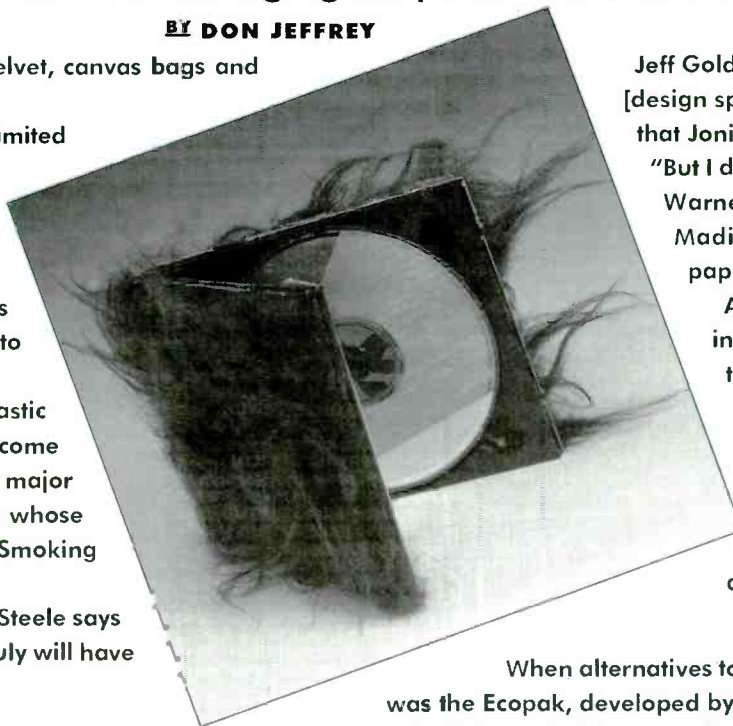 BY DON JEFFREY
elvet, canvas bags and
imited
s
to
astic
come
major
whose
Smoking
Steele says
uly will have
Jeff Gold
[design sp
that Joni
"But I d
Warne
Madi
pap
A
in
t
c
When alternatives to
was the Ecopak, developed by